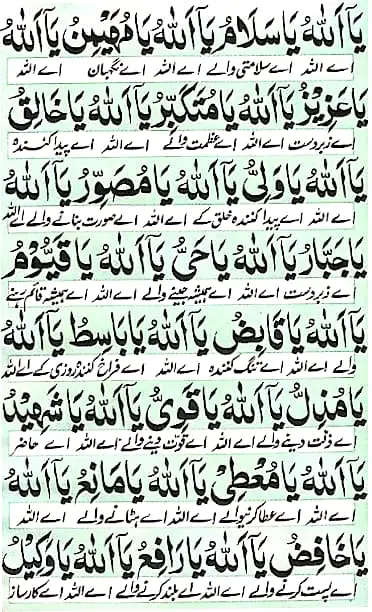 يَآ اَللّٰهُ يَا سَلَامُ يَآ اَللّٰهُ يَا مُهَيْمِنُ يَآ اَللّٰهُ
اے اللہ اے سلامتی والے اے اللہ اے نگہبان اے اللہ
يَا عَزِيْزُ يَآ اَللّٰهُ يَا مُتَكَبِّرُ يَآ اَللّٰهُ يَا خَالِقُ
اے زبردست اے اللہ اے عظمت والے اے اللہ اے پیدا کنندہ
يَآ اَللّٰهُ يَا وَلِيُّ يَآ اَللّٰهُ يَا مُصَوِّرُ يَآ اَللّٰهُ
اے اللہ اے پیدا کنندہ خلق کے اے اللہ اے صورت بنانے والے اے اللہ
يَا جَبَّارُ يَآ اَللّٰهُ يَا حَيُّ يَآ اَللّٰهُ يَا قَيُّوْمُ
اے زبردست اے اللہ اے ہمیشہ جینے والے اے اللہ اے ہمیشہ قائم رہنے
يَآ اَللّٰهُ يَا قَابِضُ يَآ اَللّٰهُ يَا بَاسِطُ يَآ اَللّٰهُ
والے اے اللہ اے تنگ کنندہ اے اللہ اے فراخ کنندہ روزی کے اے اللہ
يَا مُذِلُّ يَآ اَللّٰهُ يَا قَوِيُّ يَآ اَللّٰهُ يَا شَهِيْدُ
اے ذلت دینے والے اے اللہ اے قوت دینے والے اے اللہ اے حاضر
يَآ اَللّٰهُ يَا مُعْطِىْ يَآ اَللّٰهُ يَا مَانِعُ يَآ اَللّٰهُ
اے اللہ اے عطا کرنیوالے اے اللہ اے ہٹانے والے اے اللہ
يَا خَافِضُ يَآ اَللّٰهُ يَا رَافِعُ يَآ اَللّٰهُ يَا وَكِيْلُ
اے پست کرنے والے اے اللہ اے بلند کرنے والے اے اللہ اے کارساز